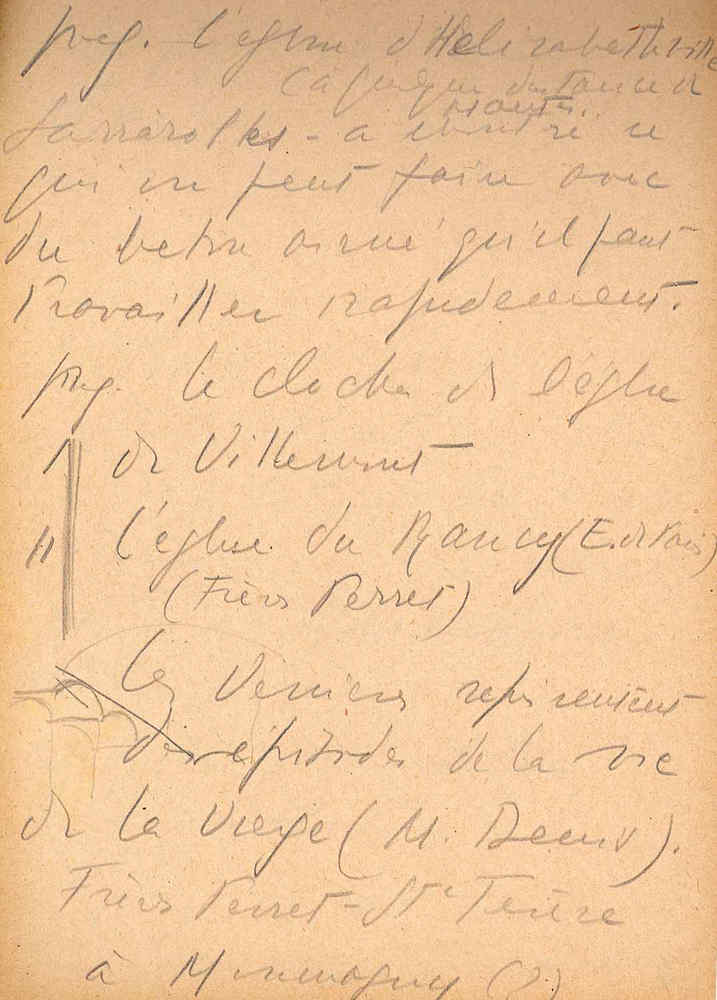 prég. l'église d'Hélizabethville
(à quelque distance de
Mantes..
Sarrazolles - a montré ce
qui on peut faire avec
du béton armé qu'il faut
travailler rapidement.
prég. le clocher de l'église
I de Villemont
II l'église du Raincy (E. de Paris)
(Frères Perret)
Les Verrières représentent
des épisodes de la vie
de la Vierge (M. Denis).
Frères Perret - Ste Terèse
à Montmagny (?)